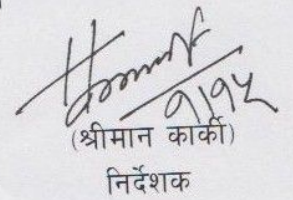 १/१५
(श्रीमान कार्की)
निर्देशक